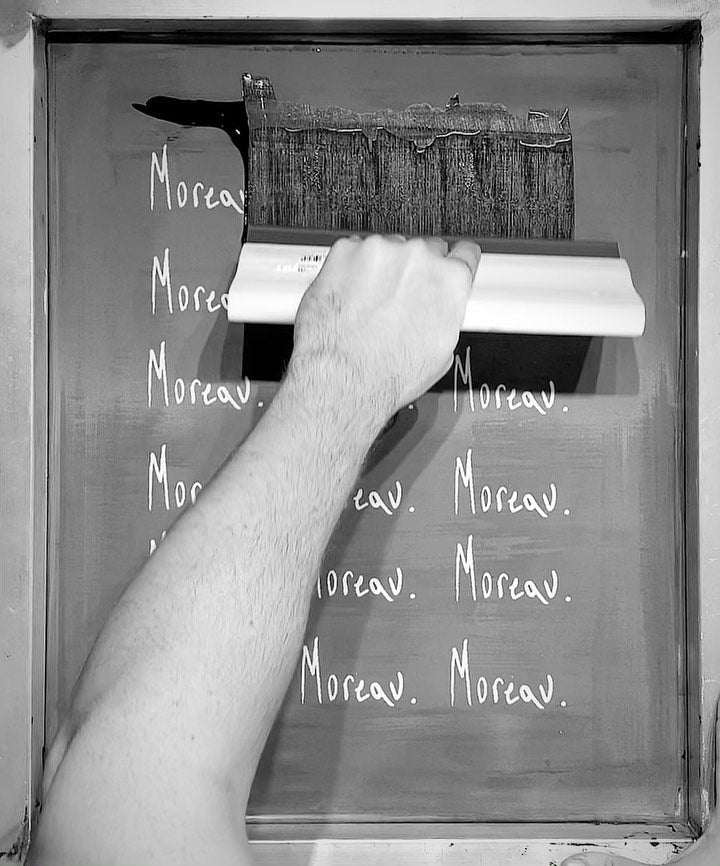 Moreau
More
Moreau. . Moreau.
Mor eau. Moreau.
oreau. Moreau.
Moreau. Moreau.